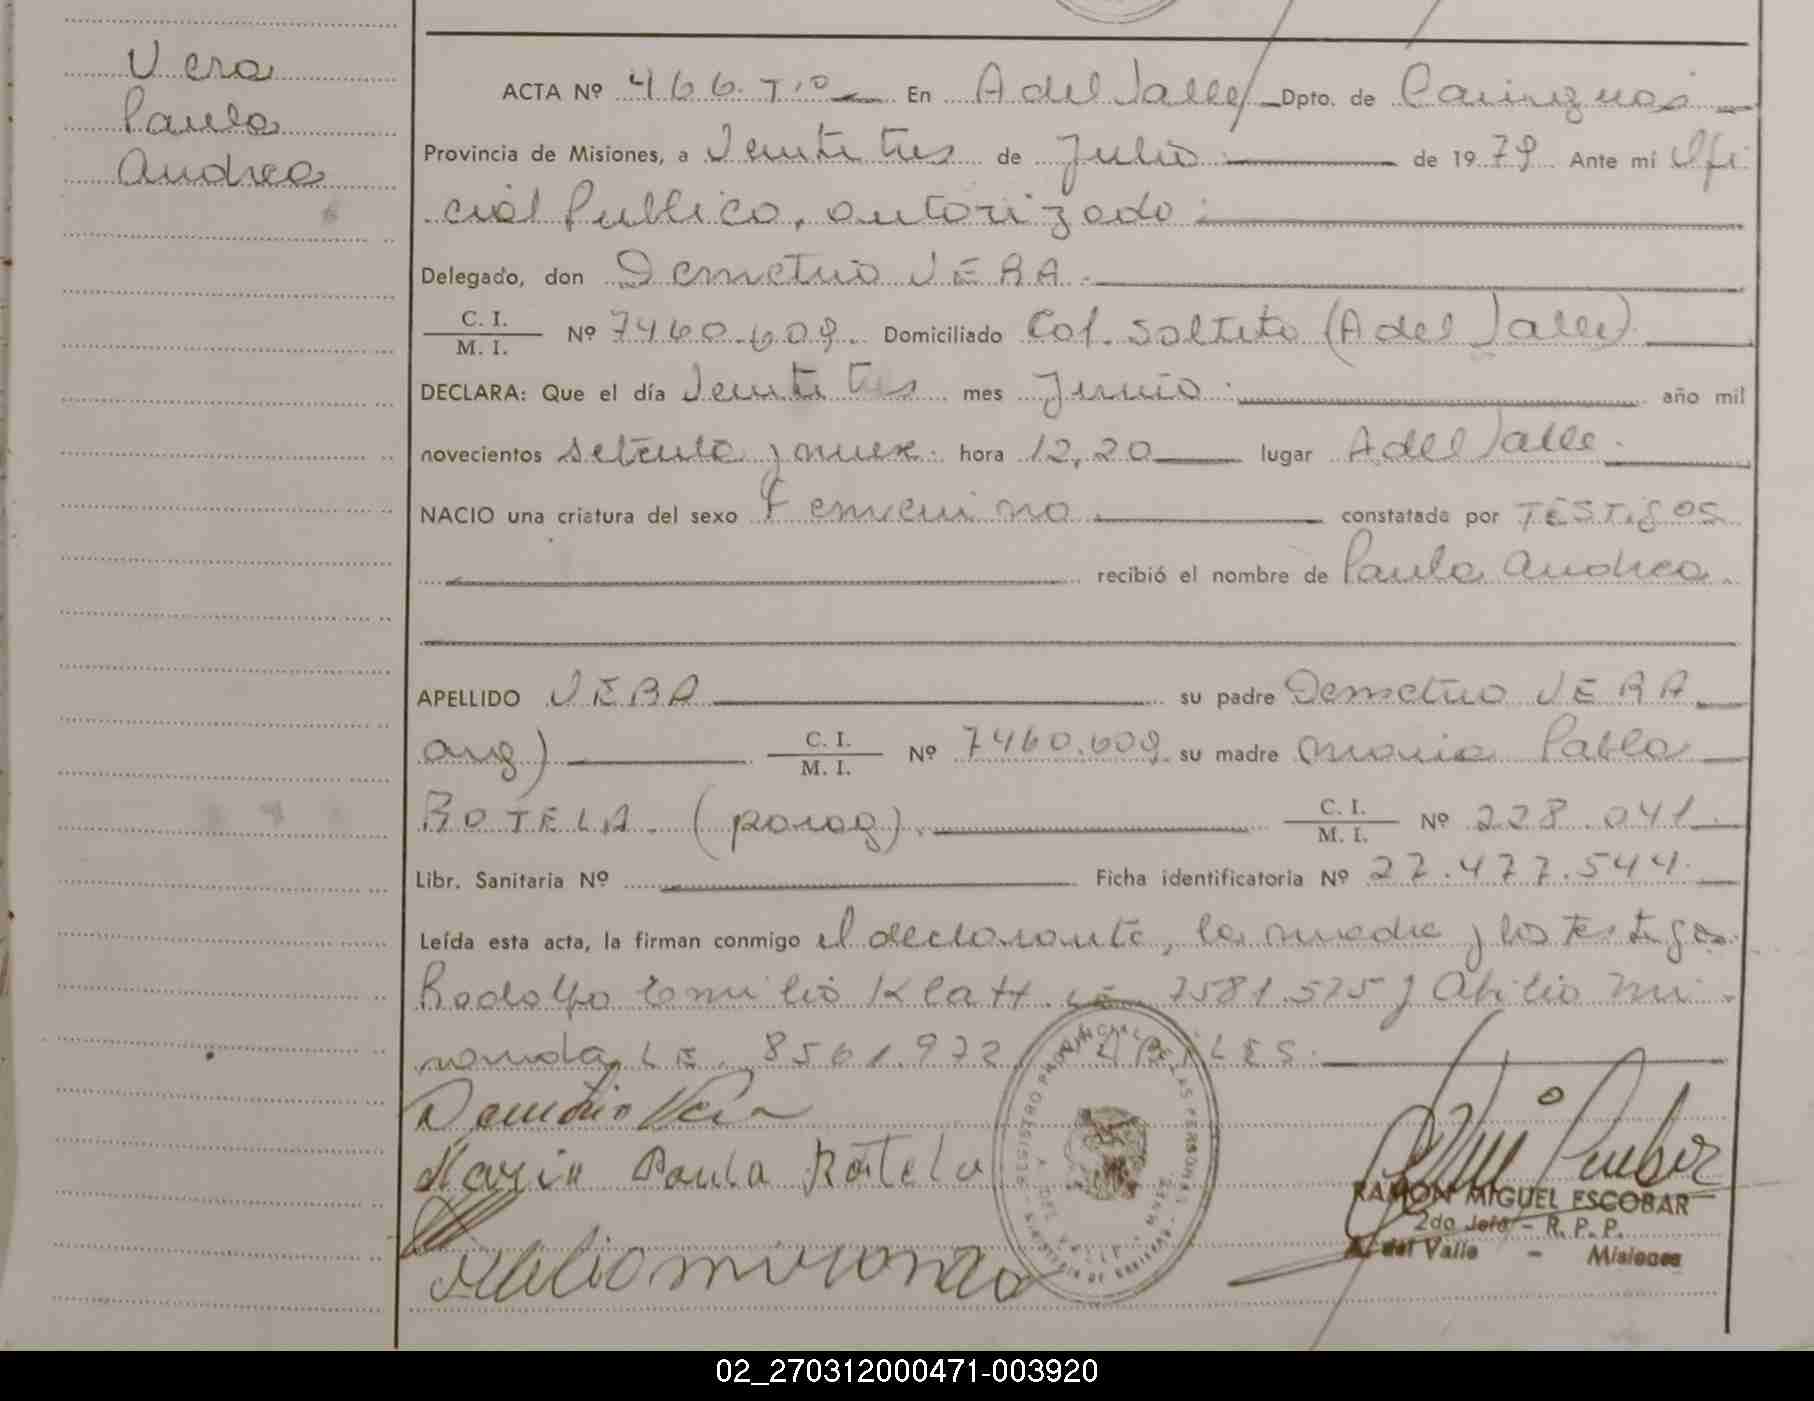 Vera
Paula
Andrea
ACTA Nº 466. Tº En A del Valle Dpto. de Cainguas
Provincia de Misiones, a Veintitres de Julio de 1979 Ante mí Ofi
cial Publico, autorizado
Delegado, don Demetrio VERA.
C. I.
M. I. Nº 7460.609. Domiciliado Col. Saltito (A del Valle)
DECLARA: Que el día Veintitres mes Junio año mil
novecientos setenta y nueve hora 12,20 lugar A del Valle.
NACIO una criatura del sexo Femenino constatada por TESTigos
recibió el nombre de Paula Andrea.
APELLIDO VERA su padre Demetrio VERA
arg) C. I.
M. I. Nº 7460.609 su madre Maria Pabla
ROTELA. (parag). C. I.
M. I. Nº 228.041.
Libr. Sanitaria Nº Ficha identificatoria Nº 27.477.544.
Leída esta acta, la firman conmigo el declarante, la madre y los testigos
Rodolfo Emilio Klatt. LE 7581.575 y Abilio Mi
randa LE. 8561.972
Demetrio Vera
Maria Paula Rotela
Abilio miranda
REGISTRO PROVINCIAL DE LAS PERSONAS
A. DEL VALLE - MNES.
MINISTERIO DE GOBIERNO
RAMON MIGUEL ESCOBAR
2do Jefe - R. P. P.
A. del Valle - Misiones
02_270312000471-003920